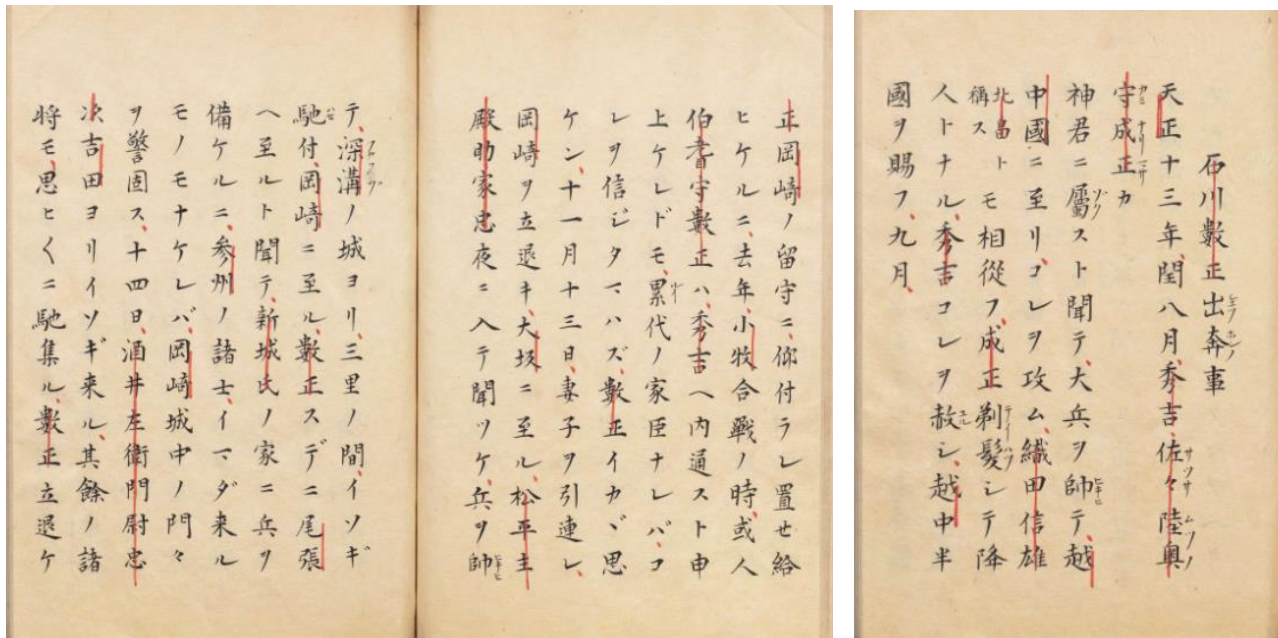 石川數正出奔事
天正十三年、閏八月、秀吉、佐々陸奥
守成正カ
神君ニ屬スト聞テ、大兵ヲ帥テ、越
中國ニ至リ、コレヲ攻ム、織田信雄
北畠ト稱ス モ相從フ、成正剃髪シテ降
人トナル、秀吉コレヲ赦シ、越中半
國ヲ賜フ、九月、
正岡崎ノ留守ニ、仰付ラレ置せ給
ヒケルニ、去年、小牧合戰ノ時、或人
伯耆守數正ハ、秀吉ヘ内通スト申
上ケレドモ、累代ノ家臣ナレバ、コ
レヲ信ジタマハズ、數正イカヾ思
ケン、十一月十三日、妻子ヲ引連レ、
岡崎ヲ立退キ、大坂ニ至ル、松平主
殿助家忠、夜ニ入テ聞ツケ、兵ヲ帥
テ、深溝ノ城ヨリ、三里ノ間、イソギ
馳付、岡崎ニ至ル、數正スデニ尾張
ヘ至ルト聞テ、新城氏ノ家ニ兵ヲ
備ケルニ、参州ノ諸士、イマダ来ル
モノモナケレバ、岡崎城中ノ門々
ヲ警固ス、十四日、酒井左衛門尉忠
次吉田ヨリイソギ来ル、其餘ノ諸
将モ、思ヒ〱ニ馳集ル、數正立退ケ